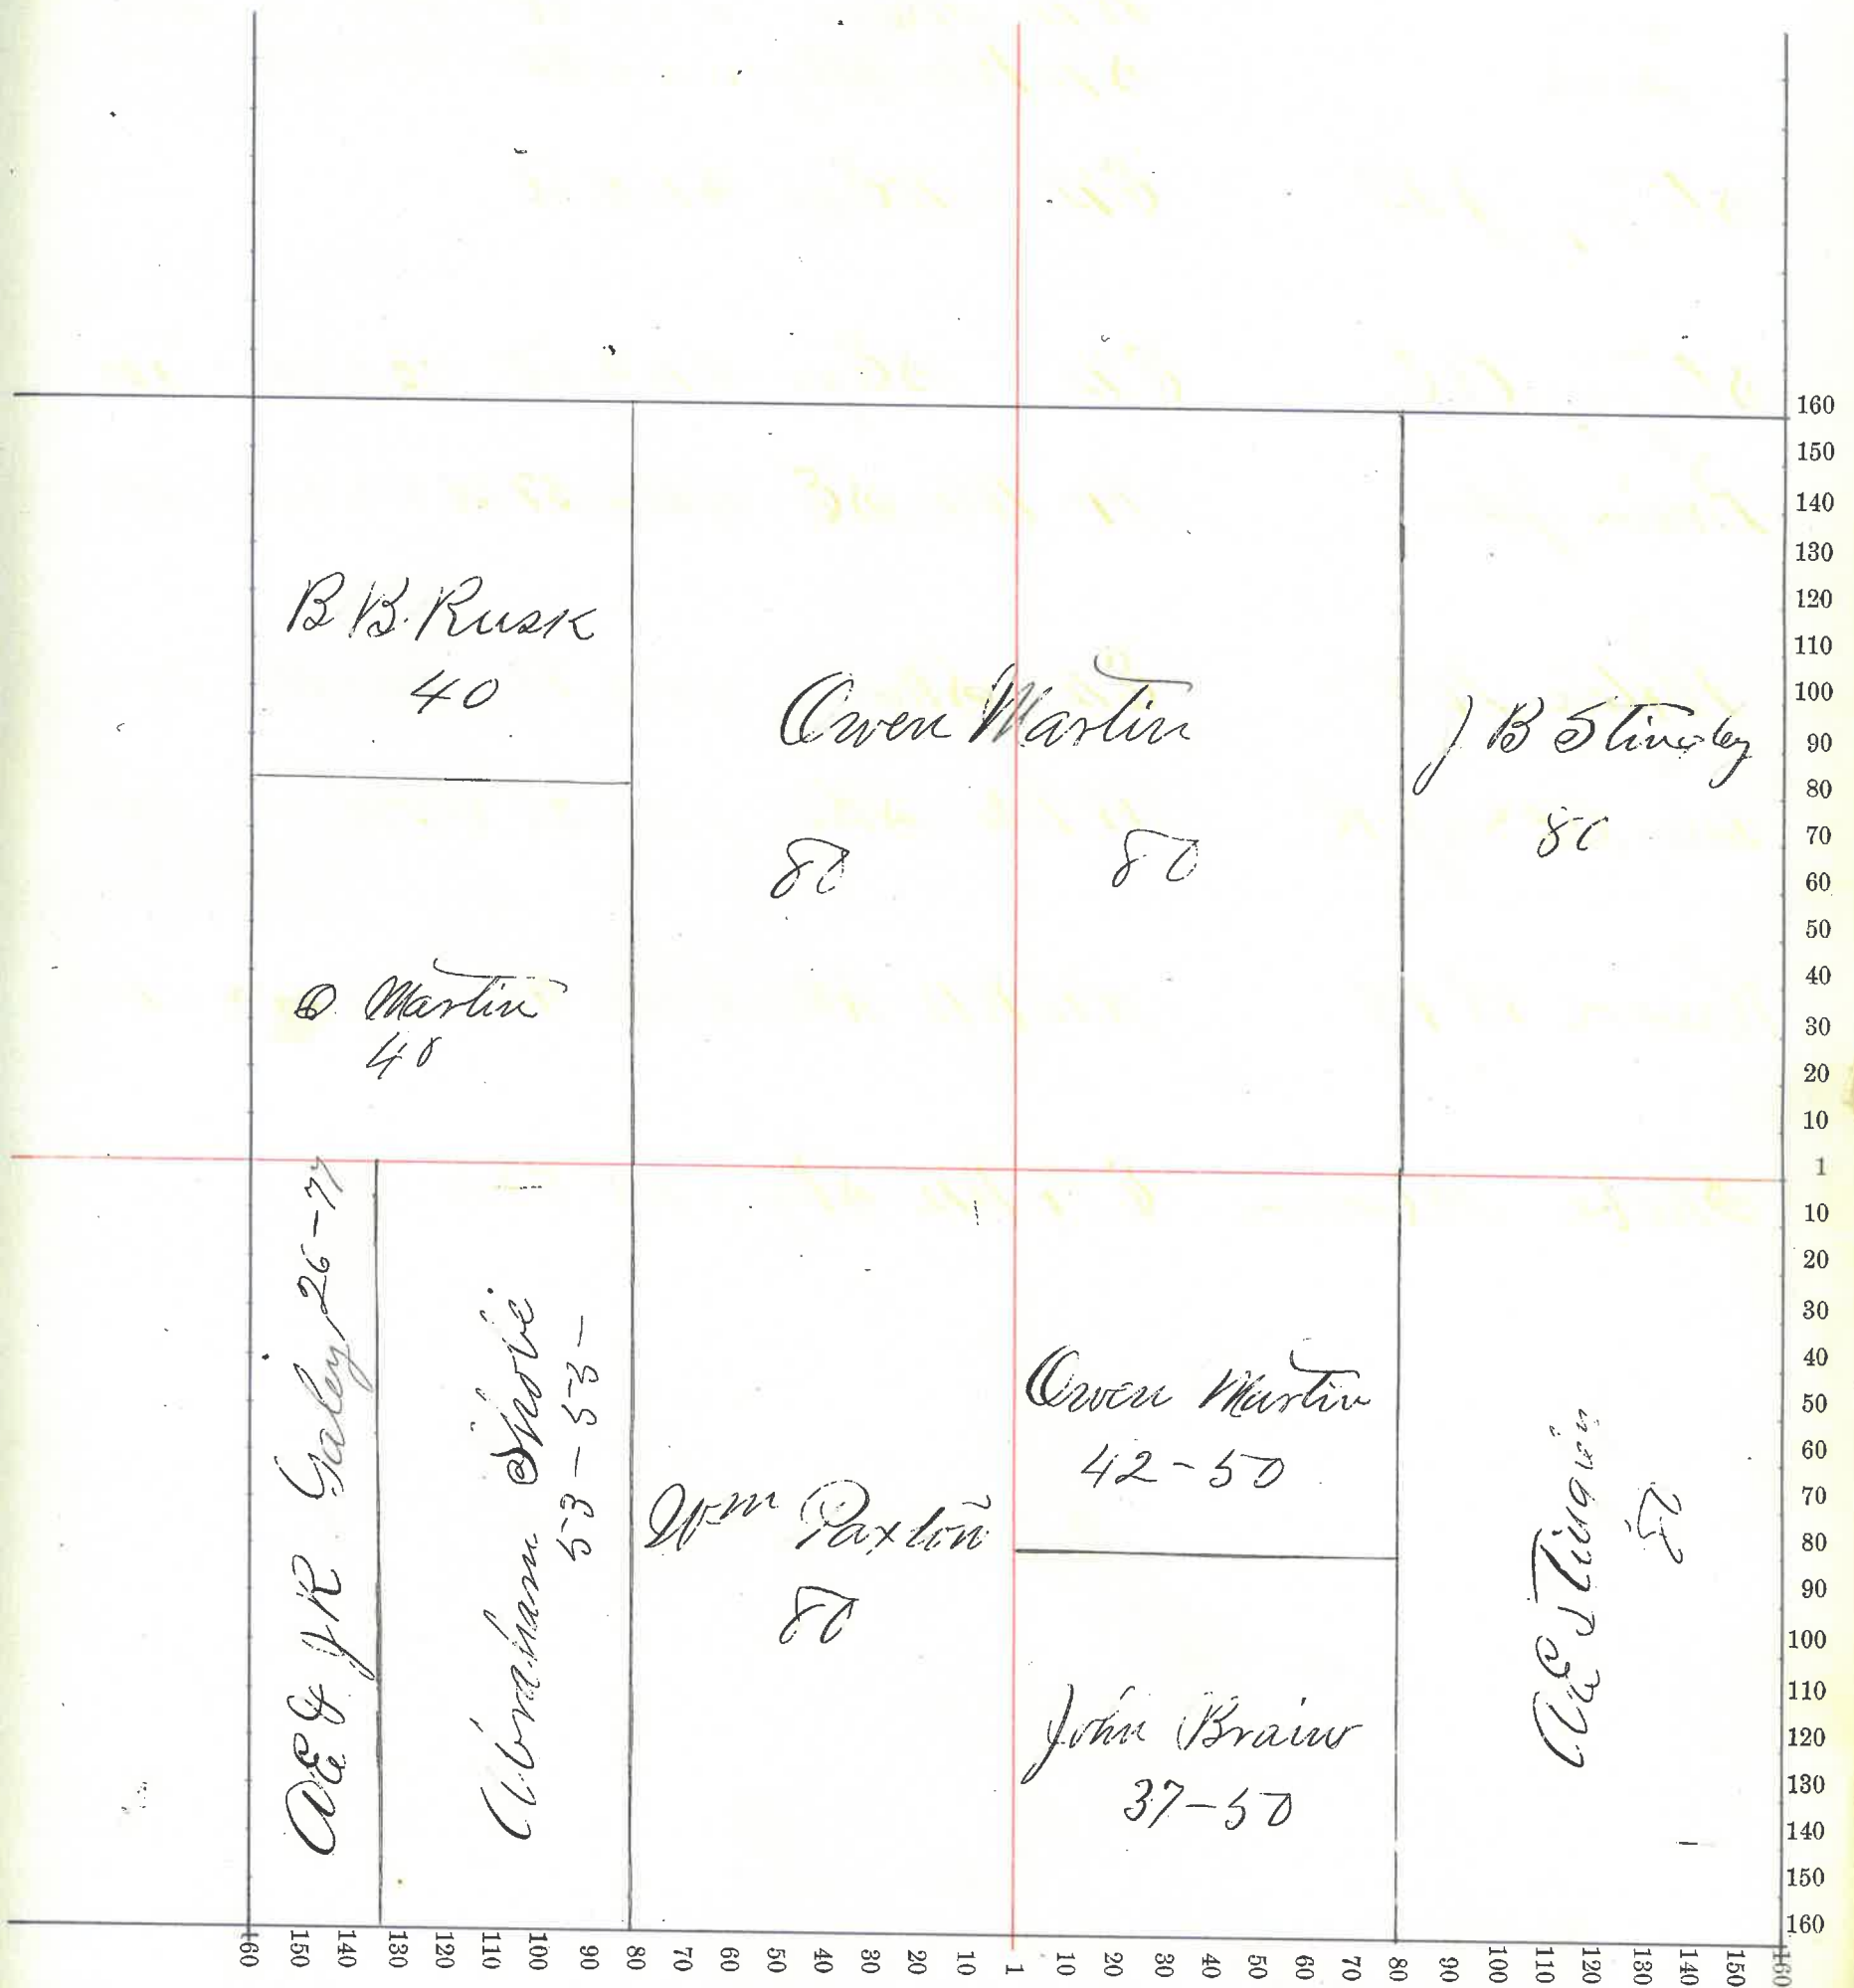 B B. Rusk
40
Owen Martin
80 80
J B
80
O Martin
40
A E & J R Galey 26-77
Abraham
53-53-
Wm Paxton
80
Owen Martin
42-50
John
37-50
A E
80
160
150
140
130
120
110
100
90
80
70
60
50
40
30
20
10
1
10
20
30
40
50
60
70
80
90
100
110
120
130
140
150
160
160 150 140 130 120 110 100 90 80 70 60 50 40 30 20 10 1 10 20 30 40 50 60 70 80 90 100 110 120 130 140 150 160